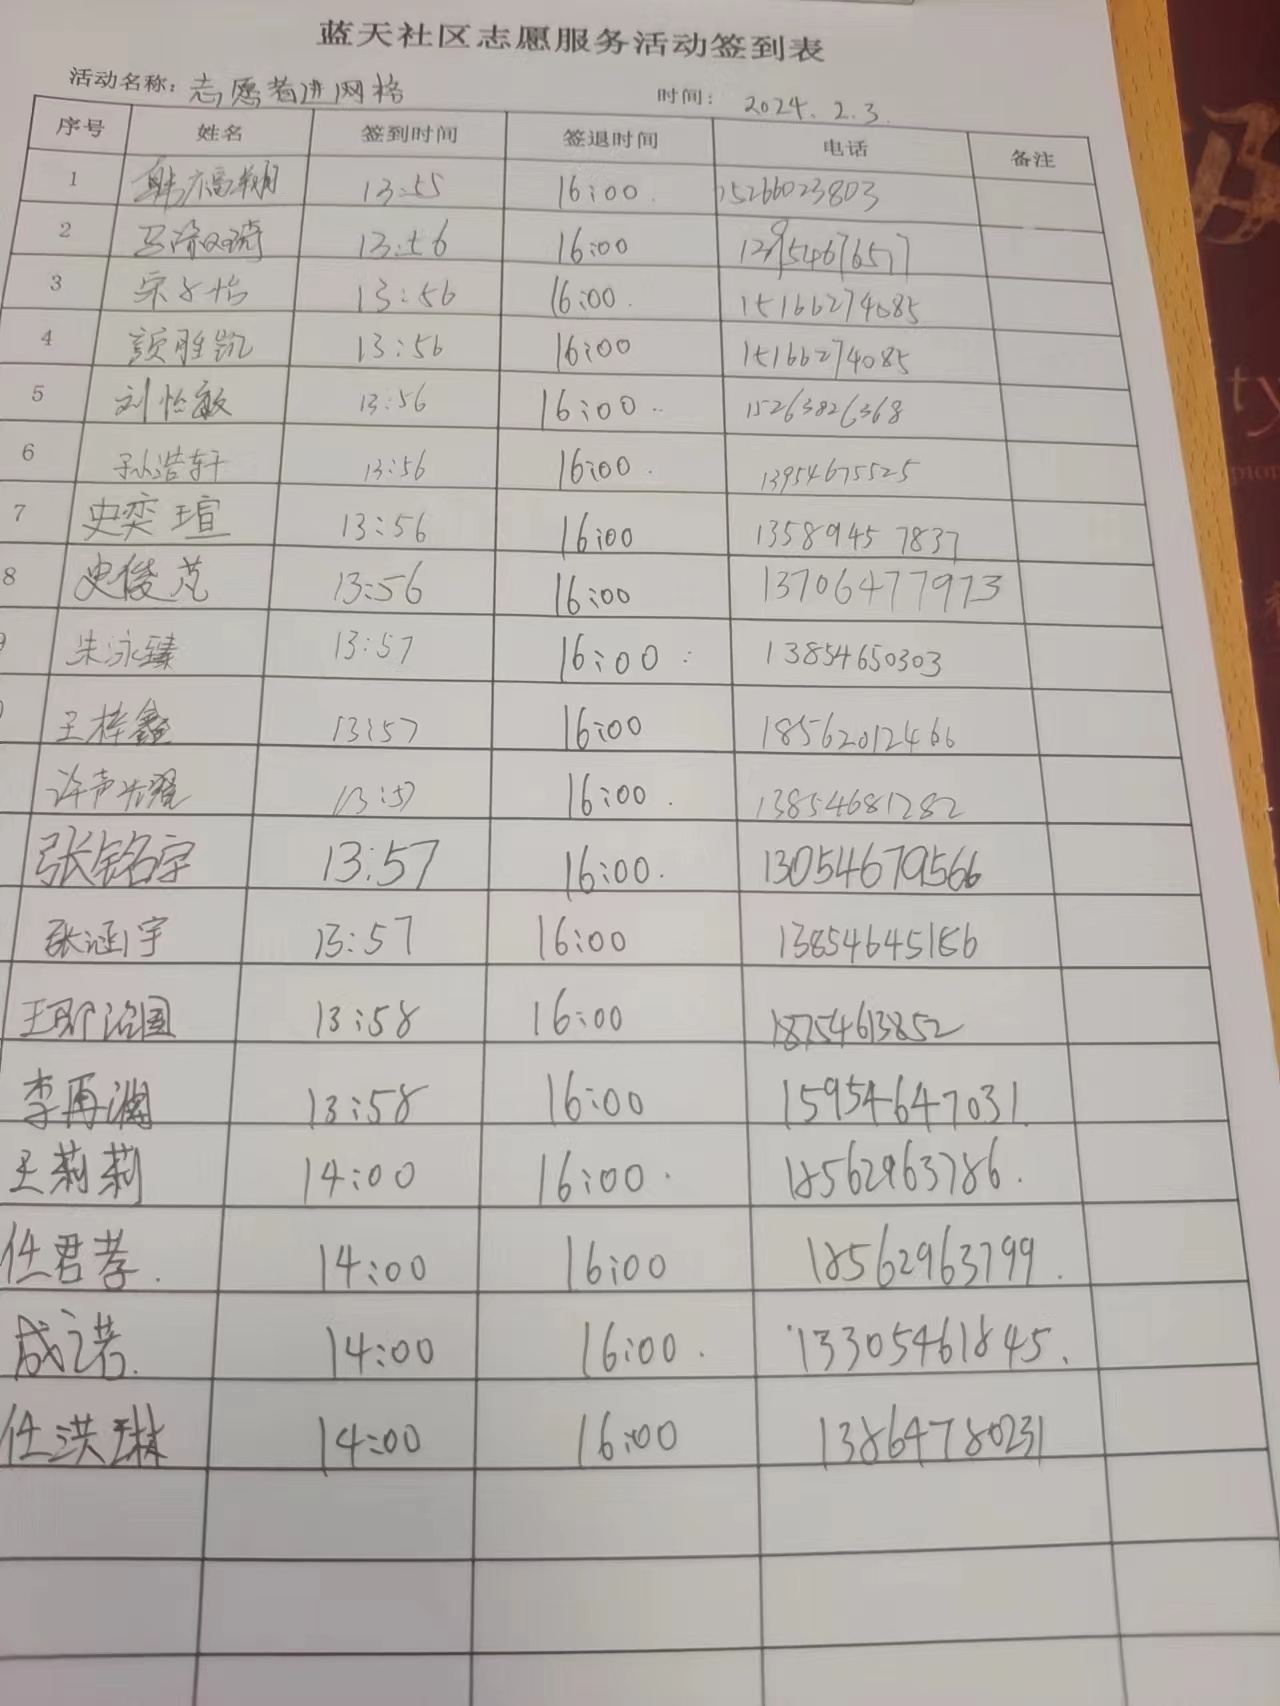 蓝天社区志愿服务活动签到表
活动名称：志愿者进网格 时间：2024.2.3.
序号 姓名 签到时间 签退时间 电话 备注
1 13:55 16:00. 15266023803
2 13:56 16:00
3 宋子怡 13:56 16:00. 15166274085
4 颜胜凯 13:56 16:00 15166274085
5 刘怡敏 13:56 16:00.. 15263826368
6 孙浩轩 13:56 16:00. 13954675525
7 史奕瑄 13:56 16:00 13589457837
8 史俊芃 13:56 16:00 13706477973
朱泳臻 13:57 16:00 : 13854650303
王梓鑫 13:57 16:00 18562012466
13:57 16:00. 13854681282
张铭宇 13:57 16:00. 13054679566
张涵宇 13:57 16:00 13854645156
13:58 16:00 18754613852
李再澜 13:58 16:00 15954647031
王莉莉 14:00 16:00. 18562963786.
任君孝. 14:00 16:00 18562963799.
成之诺. 14:00 16:00. 13305461845.
任洪琳 14:00 16:00 13864780231